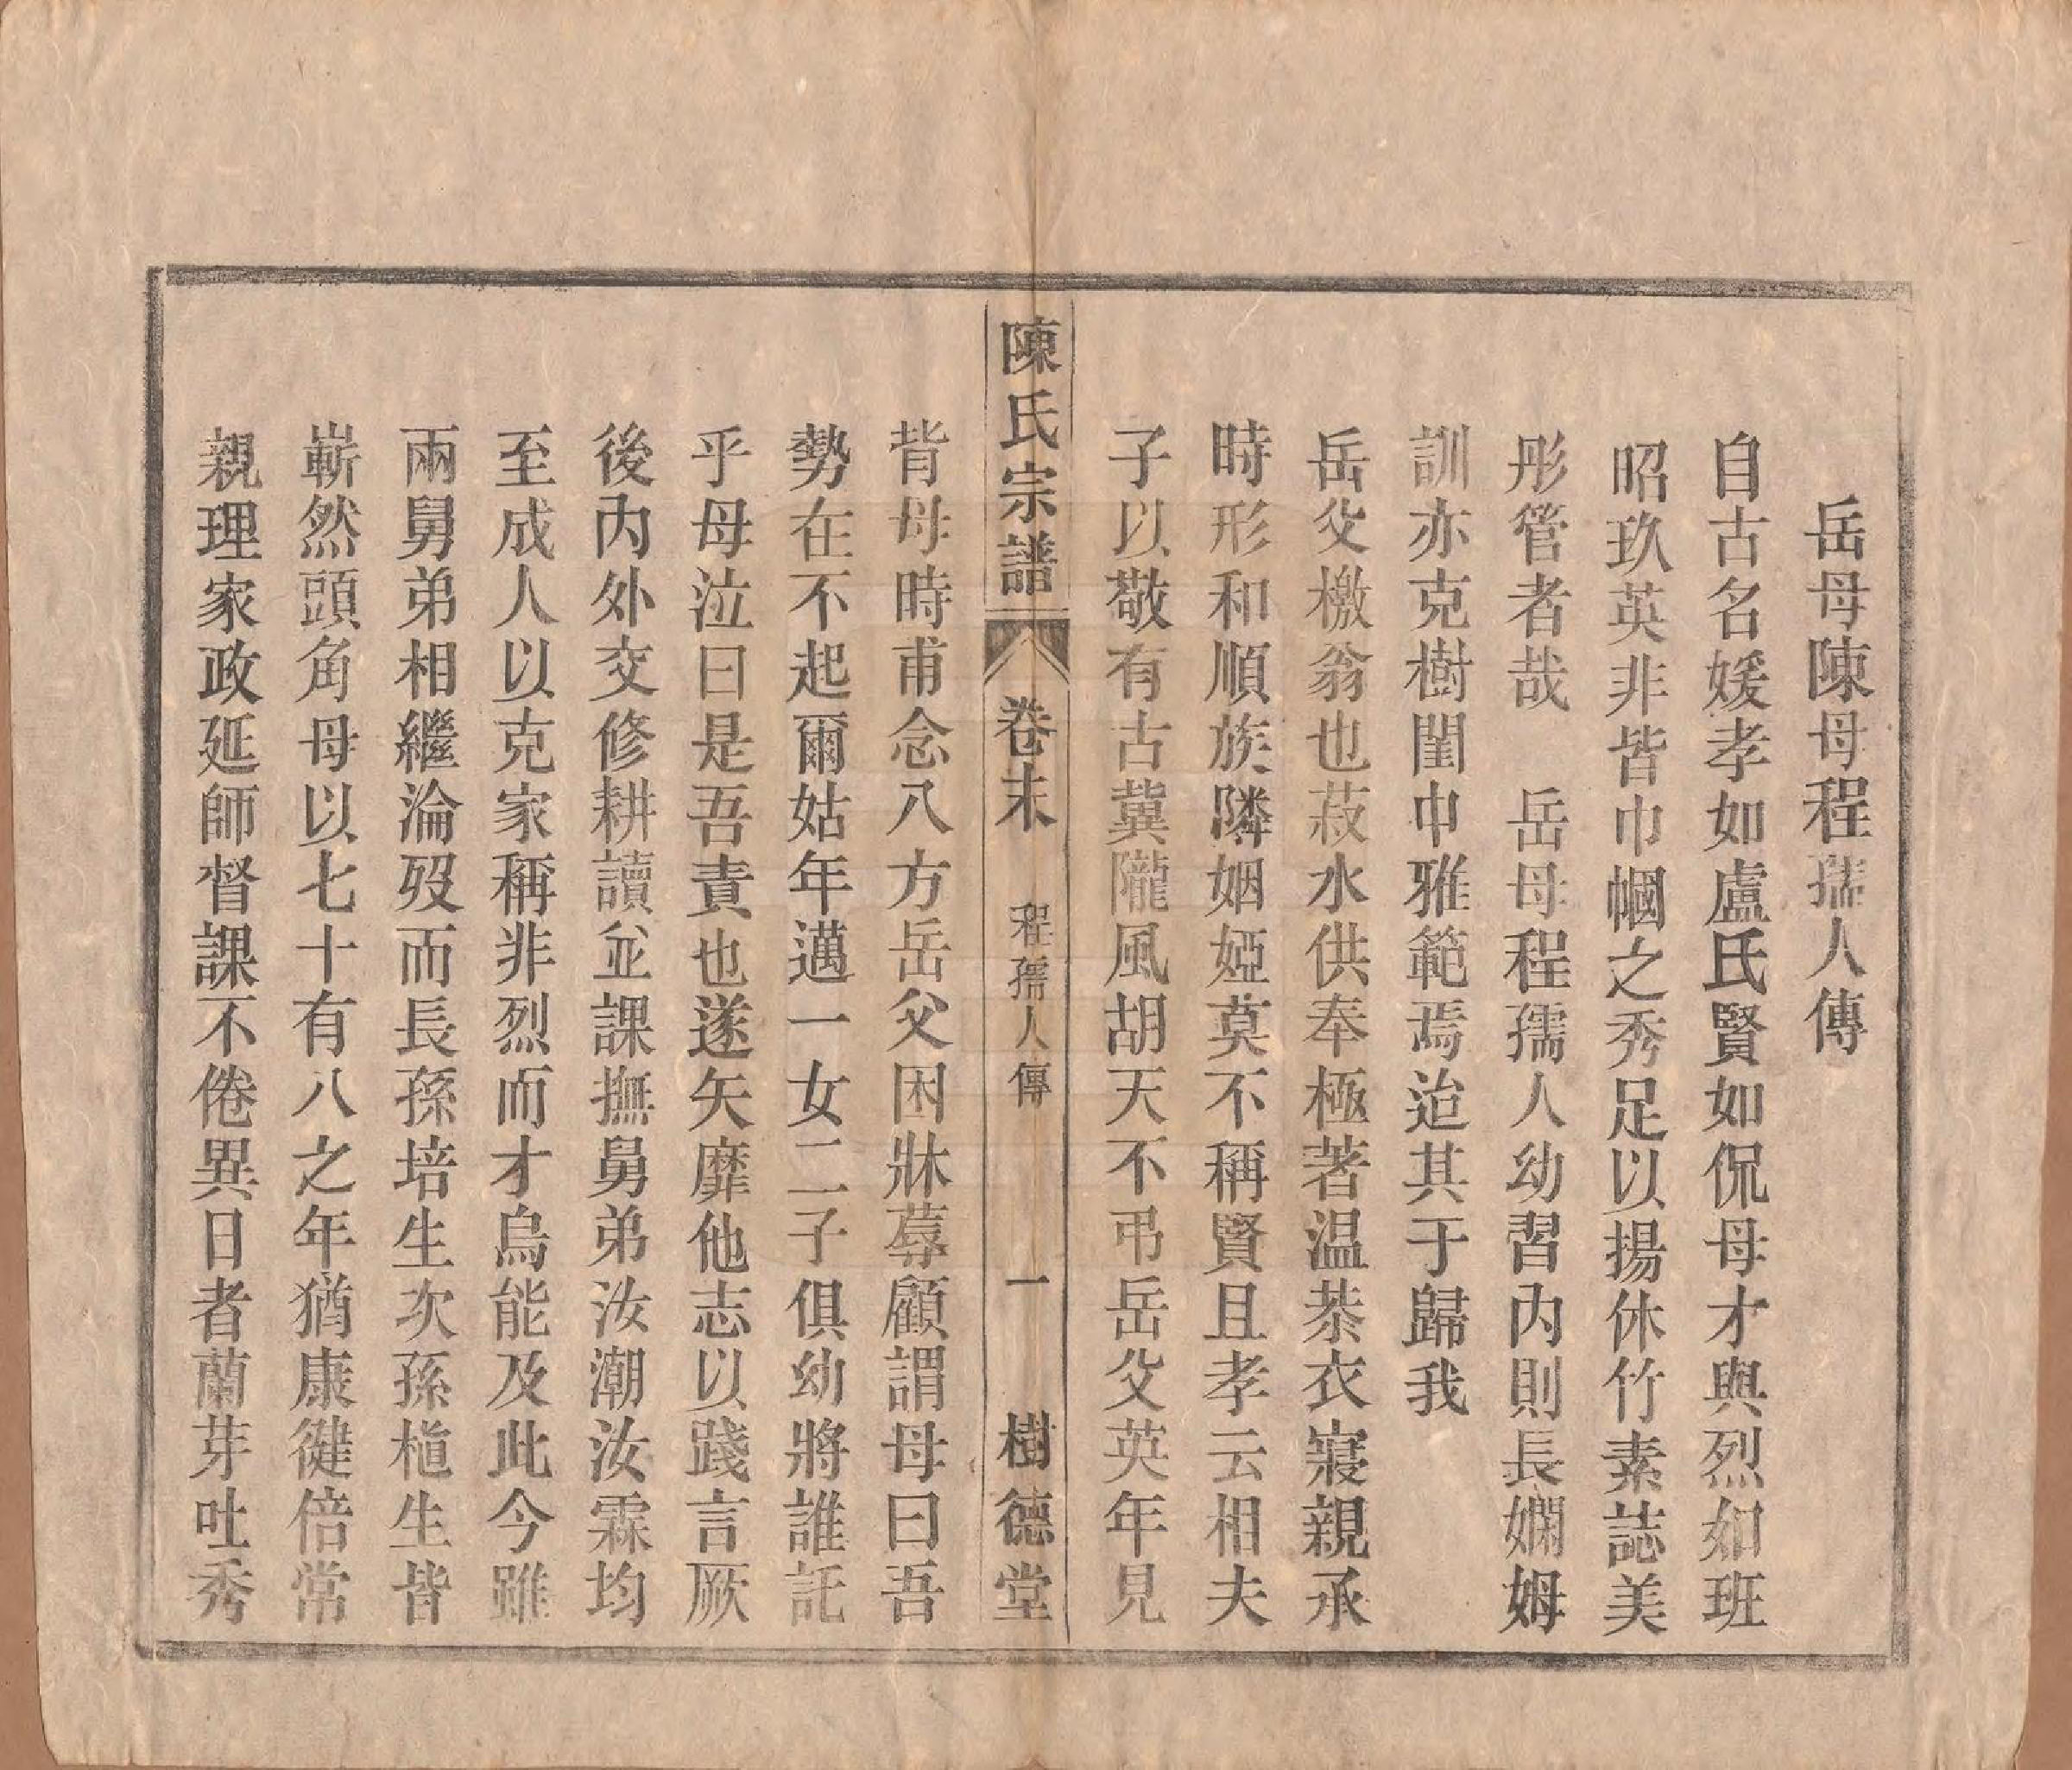 岳母陳母程孺人傳
自古名媛孝如盧氏賢如侃母才與烈如班
昭玖英非皆巾幗之秀足以揚休竹素誌美
彤管者哉　岳母程孺人幼習內則長嫻姆
訓亦克樹閨中雅範焉迨其于歸我
岳父檄翁也菽水供奉極著温恭衣寢親承
時形和順族隣姻婭莫不稱賢且孝云相夫
子以敬有古冀隴風胡天不弔岳父英年見
陳氏宗譜　卷末　程孺人傳　一　樹德堂
背母時甫念八方岳父困牀蓐顧謂母曰吾
勢在不起爾姑年邁一女二子俱幼將誰託
乎母泣曰是吾責也遂矢靡他志以踐言厥
後內外交修耕讀並課撫舅弟汝潮汝霖均
至成人以克家稱非烈而才烏能及此今雖
兩舅弟相繼淪歿而長孫培生次孫植生皆
嶄然頭角母以七十有八之年猶康健倍常
親理家政延師督課不倦異日者蘭芽吐秀